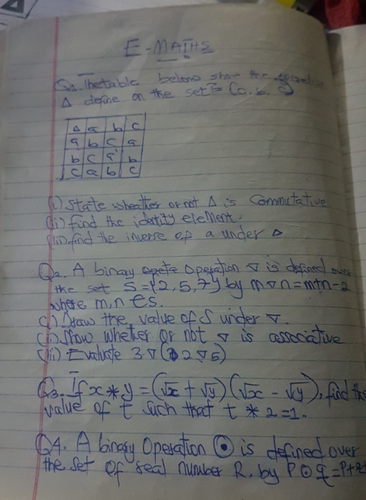 E-MATHS
Q1. The table below show the operation
Δ define on the set = {a, b, c}
Δ a b c
a b c a
b c a b
c a b c
(i) State whether or not Δ is commutative
(ii) find the identity element.
(iii) find the inverse of a under Δ
Q2. A binary operation ∇ is defined over
the set S = {2, 5, 7} by m∇n = m+n-2
where m,n ∈ S.
(i) Draw the value of S under ∇.
(ii) Show whether or not ∇ is associative
(iii) Evaluate 3∇(2∇5)
Q3. If x*y = (√x + √y)(√x - √y), find the
value of t such that t * 2 = 1.
Q4. A binary Operation ⊙ is defined over
the set of real number R. by P⊙q = P+